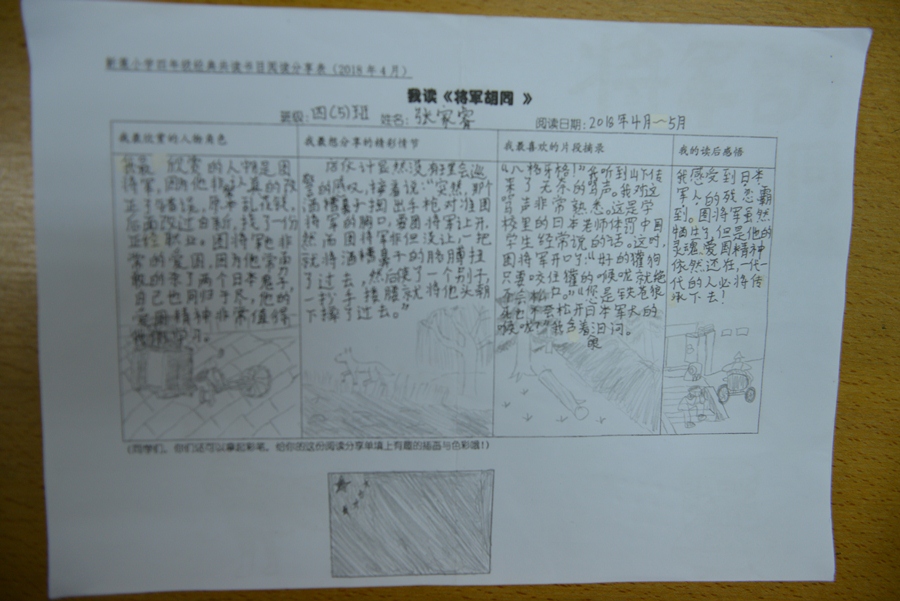 新策小学四年级经典共读书目阅读分享表（2018年4月）
我读《将军胡同 》
班级: 四(5)班 姓名: 张家睿 阅读日期: 2018年4月—5月
我最欣赏的人物角色
欣赏的人物是图
将军,因为他非常认真的改
正了错误,原来乱花钱。
后面改过自新,找了份
正经职业。图将军也非
常的爱国,因为他常
两个日本鬼子,
自己也同归于尽,他的
爱国精神非常值得
我最想分享的精彩情节
伙计显然没有理会巡
警的威吆,接着说:“突然,那个
酒糟鼻子掏出手枪,对准图
将军的胸口,要图将军让开,
然而图将军非但没让,一把
就将酒糟鼻子的胳膊拄
了过去,然后使了一个别子,
一抄手搂腰就将他头朝
下摔了过去。”
我最喜欢的片段摘录
“八格牙格!”我听到山下传
来了无奈的骂声。我对这
骂声非常熟悉。这是学
校里的日本老师体罚中国
学生经常说的话。这时,
图将军开口了:“好的獾狗
只要咬住獾的喉咙就绝
不会松口。”“你是铁苍狼
也不会松开日本军犬的
喉咙?”我含着泪问。
我的读后感悟
我感受到日本
军人的残忍霸
到。图将军虽然
牺牲了,但是他的
灵魂、爱国精神
依然还在,一代一
代的人必将传
承下去!
(同学们，你们还可以拿起彩笔，给你的这份阅读分享单填上有趣的插画与色彩哦!)